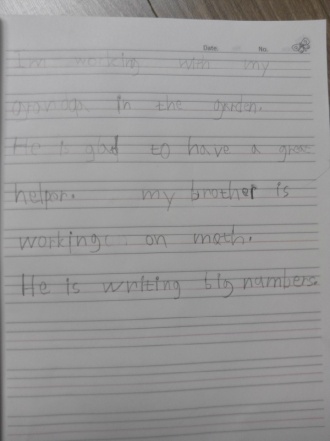 Date: No.
I'm working with my
grandpa in the garden.
He is glad to have a great
helper. my brother is
working on math.
He is writing big numbers.